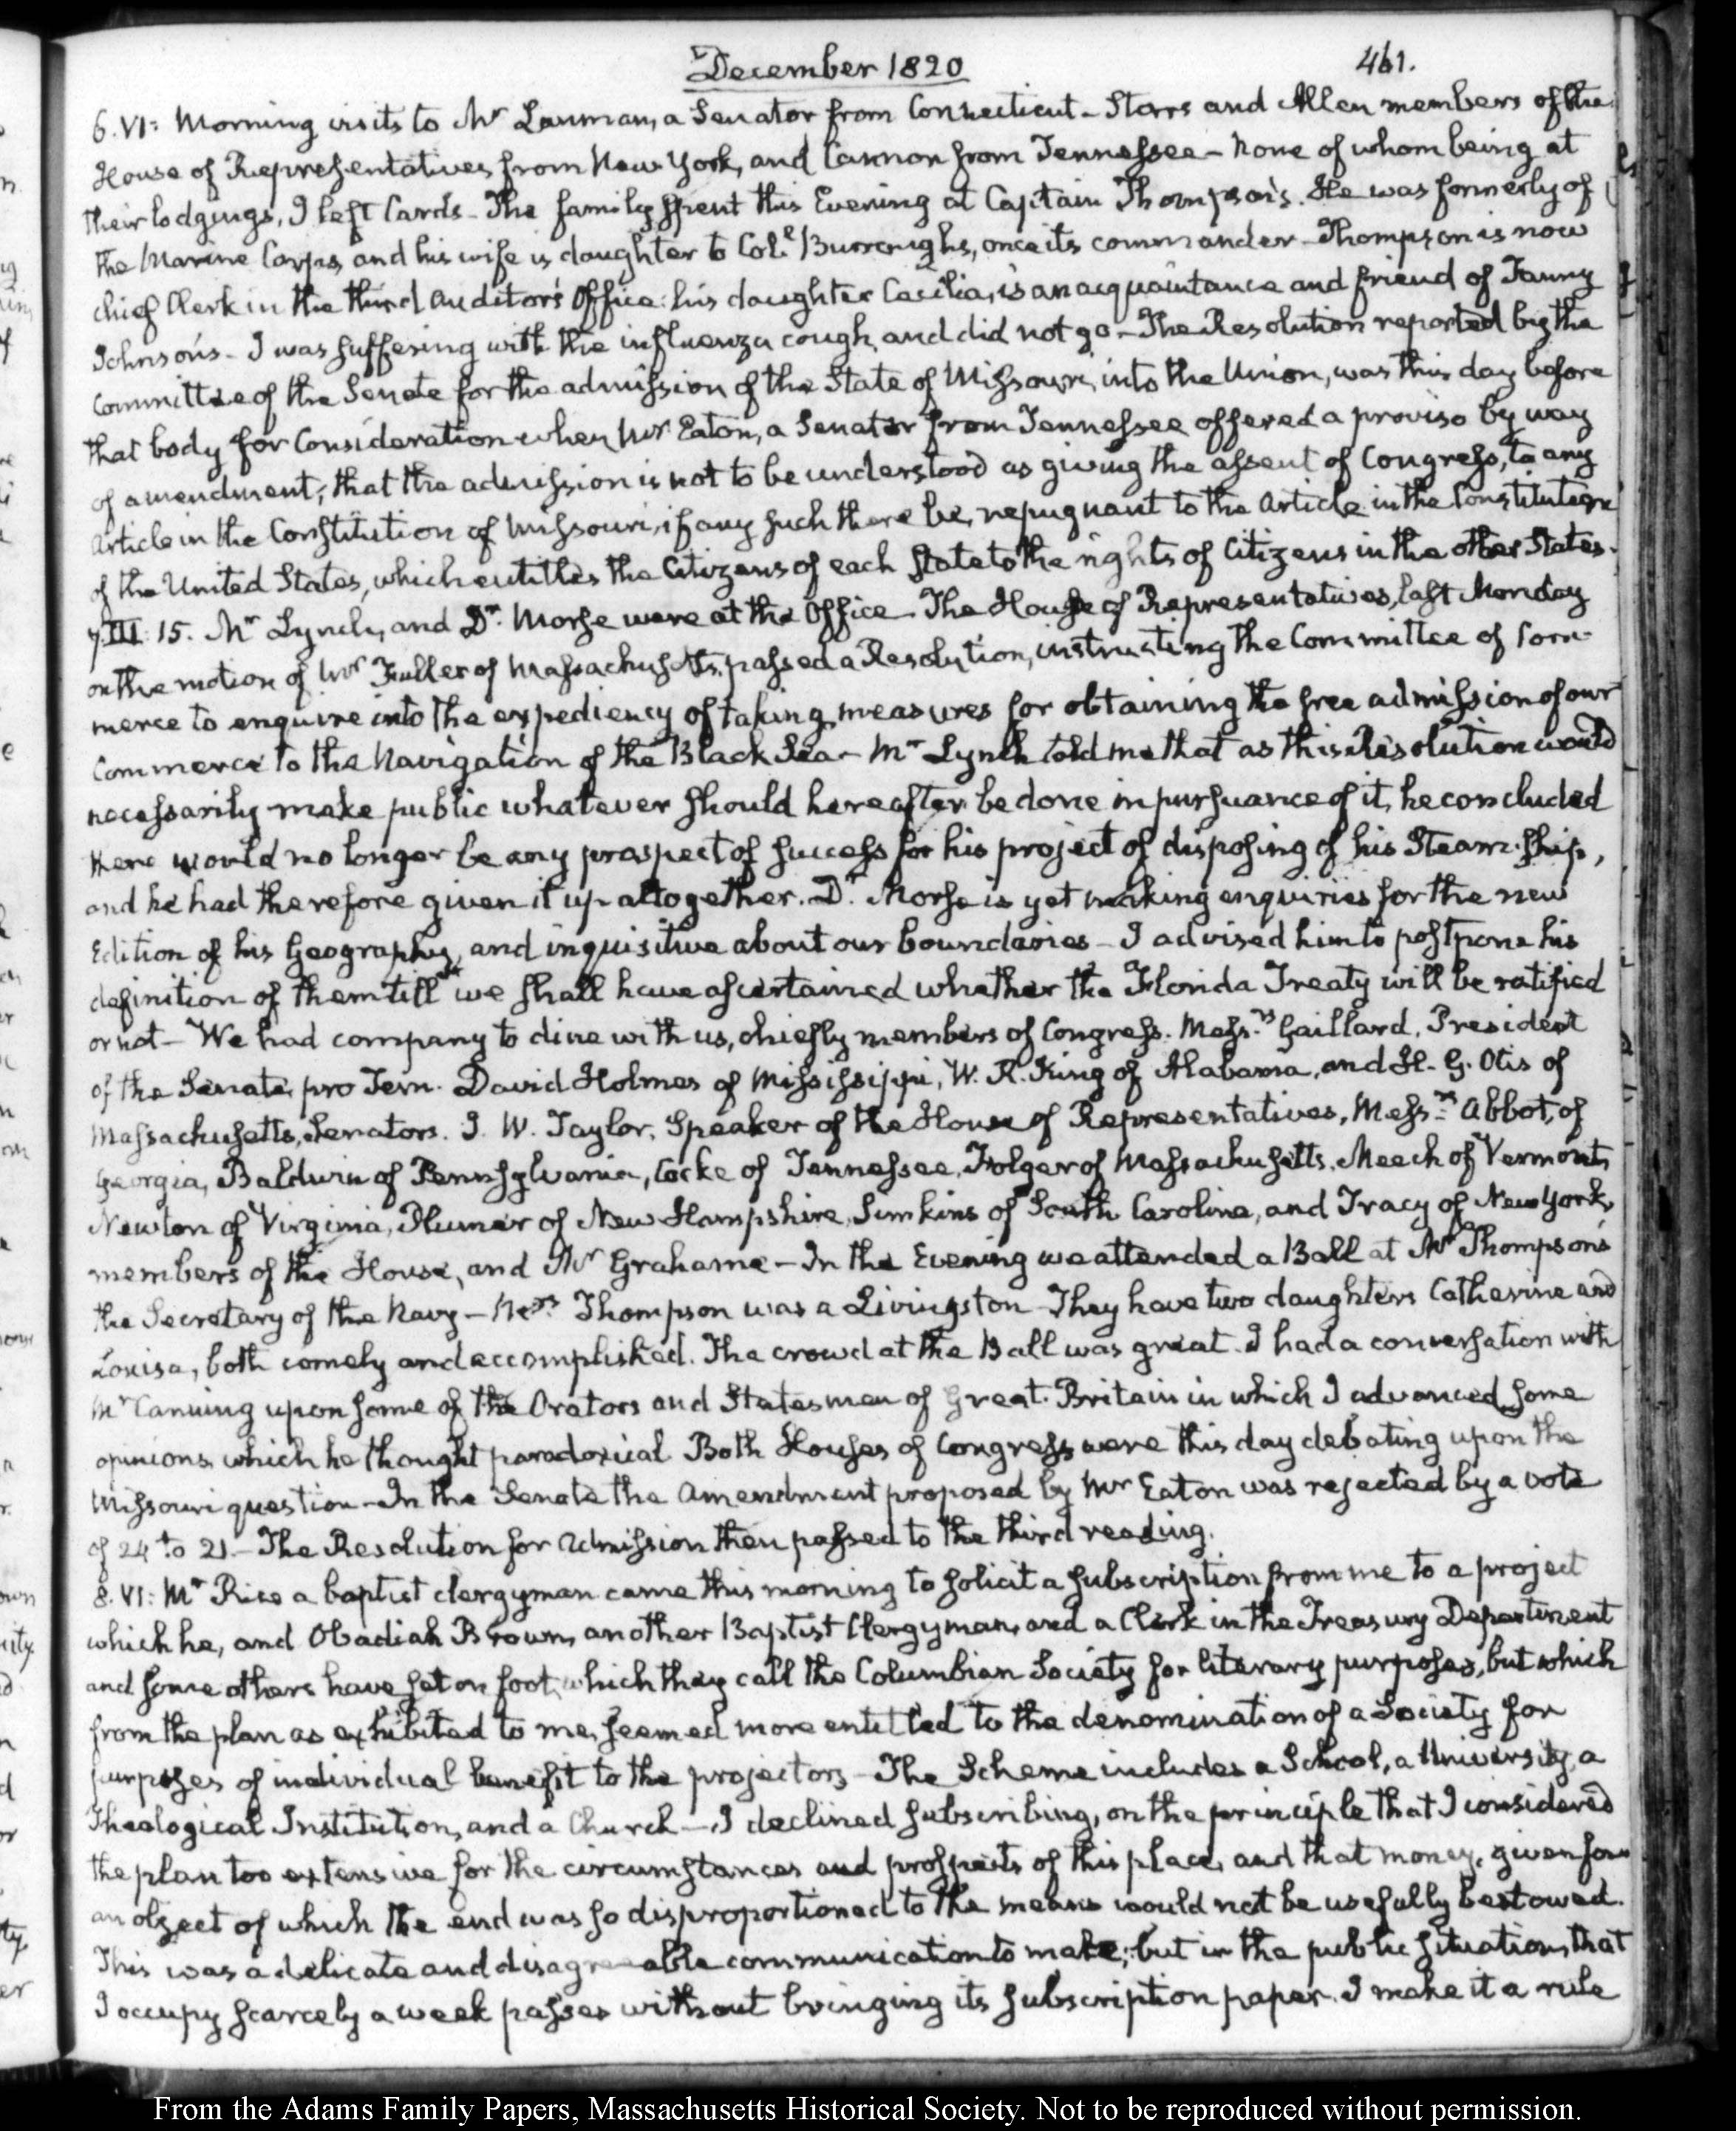 December 1820
461.
6. VI: Morning visits to Mr Lanman, a Senator from Connecticut - Storrs and Allen members of the
House of Representatives from New York, and Cannon from Tennessee - None of whom being at
their lodgings, I left Cards - The family spent this Evening at Captain Thompson's. He was formerly of
the Marine Corps, and his wife is daughter to Coll. Burroughs, once its commander - Thompson is now
chief Clerk in the third Auditor's Office: his daughter Cecilia, is an acquaintance and friend of Fanny
Johnson's - I was suffering with the influenza cough, and did not go - The Resolution reported by the
Committee of the Senate for the admission of the State of Missouri, into the Union, was this day before
that body for Consideration when Mr Eaton, a Senator from Tennessee offered a proviso by way
of amendment, that the admission is not to be understood as giving the assent of Congress, to any
Article in the Constitution of Missouri, if any such there be, repugnant to the Article in the Constitution
of the United States, which entitles the Citizens of each State to the rights of Citizens in the other States.
7. III: 15. Mr Lynch, and Dr. Morse were at the Office - The House of Representatives, last Monday
on the motion of Mr Fuller of Massachusetts, passed a Resolution, instructing the Committee of Com-
merce to enquire into the expediency of taking measures for obtaining the free admission of our
Commerce to the Navigation of the Black Sea - Mr Lynch told me that as this Resolution would
necessarily make public whatever should hereafter be done in pursuance of it, he concluded
there would no longer be any prospect of success for his project of disposing of his Steam-ship,
and he had therefore given it up altogether. Dr. Morse is yet making enquiries for the new
Edition of his Geography, and inquisitive about our boundaries - I advised him to postpone his
definition of them till we shall have ascertained whether the Florida Treaty will be ratified
or not - We had company to dine with us, chiefly members of Congress. Messrs Gaillard, President
of the Senate, pro Tem. David Holmes of Mississippi, W. R. King of Alabama, and H. G. Otis of
Massachusetts, Senators. J. W. Taylor, Speaker of the House of Representatives, Messrs Abbot, of
Georgia, Baldwin of Pennsylvania, Cocke of Tennessee, Folger of Massachusetts, Meech of Vermont,
Newton of Virginia, Plumer of New Hampshire, Simkins of South Carolina, and Tracy of New York,
members of the House, and Mr Grahame - In the Evening we attended a Ball at Mr Thompson's
the Secretary of the Navy - Mrs Thompson was a Livingston - They have two daughters Catherine and
Louisa, both comely and accomplished. The crowd at the Ball was great. I had a conversation with
Mr Canning upon some of the Orators and Statesmen of Great Britain in which I advanced some
opinions which he thought paradoxical Both Houses of Congress were this day debating upon the
Missouri question - In the Senate the Amendment proposed by Mr Eaton was rejected by a vote
of 24 to 21 - The Resolution for admission then passed to the third reading.
8. VI: Mr Rice a baptist clergyman came this morning to solicit a subscription from me to a project
which he, and Obadiah Brown, another Baptist Clergyman, and a Clerk in the Treasury Department
and some others have set on foot, which they call the Columbian Society for literary purposes, but which
from the plan as exhibited to me, seemed more entitled to the denomination of a Society for
purposes of individual benefit to the projectors - The Scheme includes a School, a University, a
Theological Institution, and a Church - I declined subscribing, on the principle that I considered
the plan too extensive for the circumstances and prospects of this place, and that money, given for
an object of which the end was so disproportioned to the means would not be usefully bestowed.
This was a delicate and disagreeable communication to make; but in the public situation, that
I occupy scarcely a week passes without bringing its subscription paper. I make it a rule
From the Adams Family Papers, Massachusetts Historical Society. Not to be reproduced without permission.